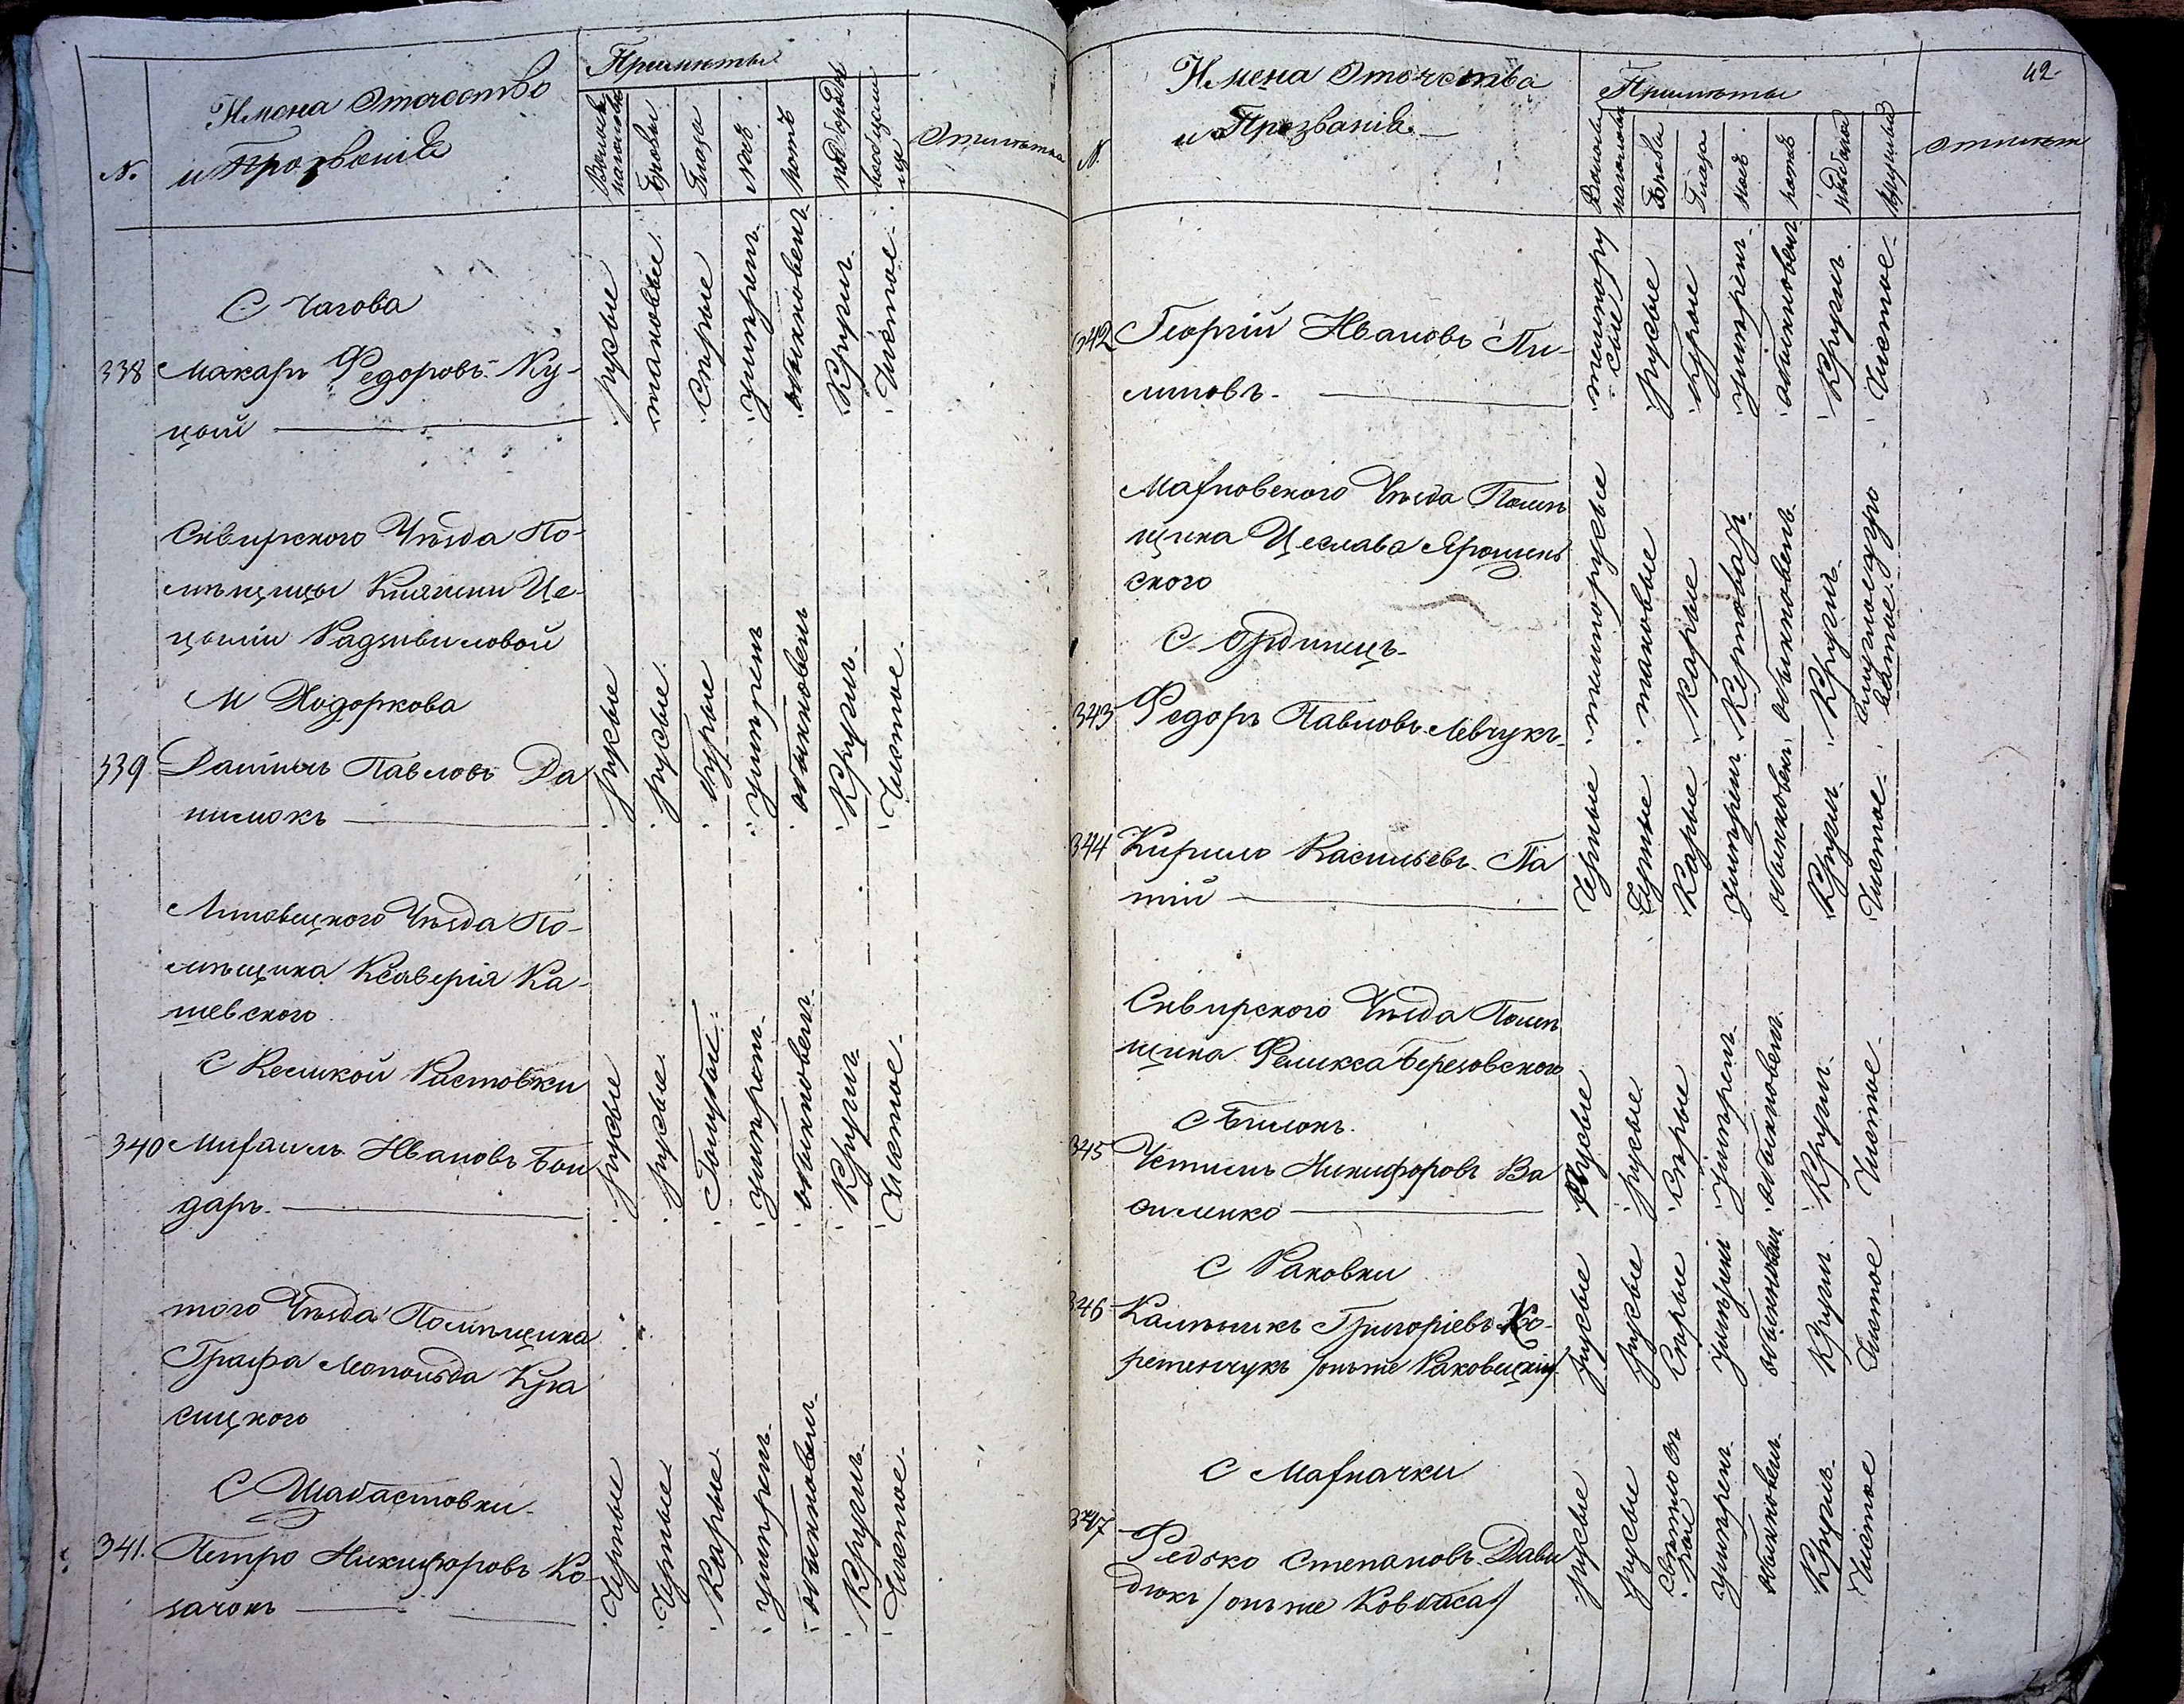 N.
Имена Отечество
и Прозванiѣ
Примѣты
Волосы
на голове
Брови
Глаза
Носъ
ротъ
подбородокъ
вообще лице
Отмѣтка
С Чагова
338 Макаръ Федоровъ Ку-
цый
русые
таковыи
Сѣрые
умѣрен.
обыкновен.
Кругл.
Чистое.
Сквирского Уѣзда По-
мѣщицы Княгини Це-
цылiи Радзивиловой
М Ходоркова
339 Данило Павловъ Да
нилюкъ
русые
русые.
бурые
умѣрен
обыкновен
Кругл.
Чистое.
Липовецкого Уѣзда По-
мѣщика Ксаверiя Ка-
шевского.
С Великой Растовки
340 Михаилъ Ивановъ Бон
даръ.
русые
русые
Голубые.
умѣрен.
обыкновен.
Кругл.
Чистое.
того Уѣзда Помѣщика
Графа Леопольда Кра
сицкого
С Шабастовки.
341. Петро Никифоровъ Ко-
зачокъ
Черные
Черные
Карые
умѣрен.
обыкновен.
Кругл.
Чистое.
42
N.
Имена Отечства
и Прозванiѣ.
Примѣты
Волосы
на голове
Брови
Глаза
носъ
ротъ
Отмѣтк
342 Георгiй Ивановъ Пи-
липовъ.
темнору
сые
русые
бурые
умѣрен.
обыкновен.
Кругл.
Чистое.
Махновского Уѣзда Помѣ
щика Цеслава Ярошин
ского
С Ординецъ.
343 Федоръ Павловъ Левчукъ.
темнорусые
таковые
Карые
обыкновен.
Кругл.
344 Кирило Васильевъ. Па
тiй
Черные
Черные
Карые
умѣрен.
обыкновен.
Кругл.
Чистое.
Сквирского Уѣзда Помѣ
щика Феликса Березовского
С Билокъ.
345 Устинъ Никифоровъ Ва
силенко
Русые
русые
Сѣрые
умѣрен.
обыкновен.
Кругл.
Чистое.
С Раковки
346 Калѣникъ Григорiевъ Хо-
ретенчукъ /онъ же Раковецкiй/
русые
русые
Сѣрые
умѣрен
обыкновен.
Кругл.
Чистое
С Махначки
347 Федько Степановъ. Дави
дюкъ /онъ же Ковбаса/
русые
русые
Светло сѣ
рые
умѣрен.
обыкновен.
Кругл.
Чистое